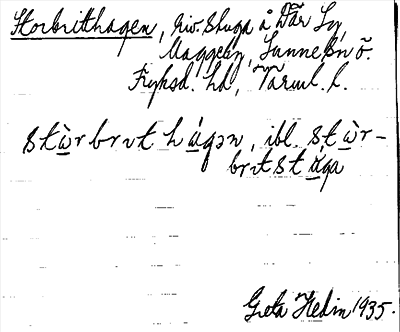 Storbritthagen, riv. stuga å Där Ly,
Maggeby, Sunne sn ö.
Fryksd. hd, Värml. l.
stὼrbrιt hágən, ibl. stὼr-
brιtstúga
Greta Hedin 1935.